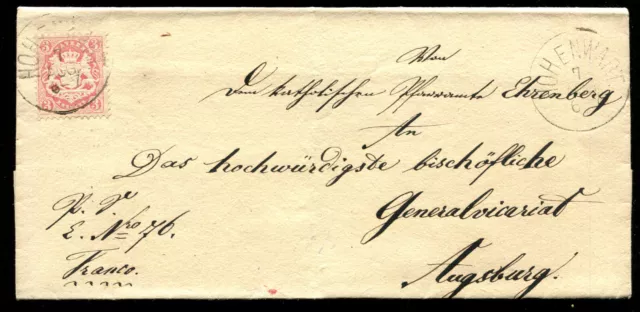 3 3
3 3
HOHENWART
7
Von
Dem katholischen Pfarramte Ehrenberg
An
Das hochwürdigste bischöfliche
Generalvicariat
Augsburg.
P. V.
E. Nro 76.
Franco.